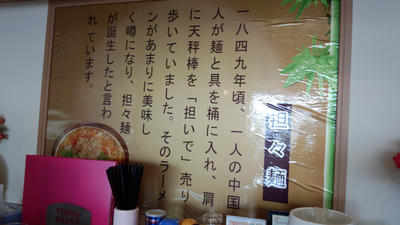 担々麺
一八四九年頃、一人の中国
人が麺と具を桶に入れ、肩
に天秤棒を「担いで」売り
歩いていました。そのラーメ
ンがあまりに美味し
く噂になり、担々麺
が誕生したと言わ
れています。